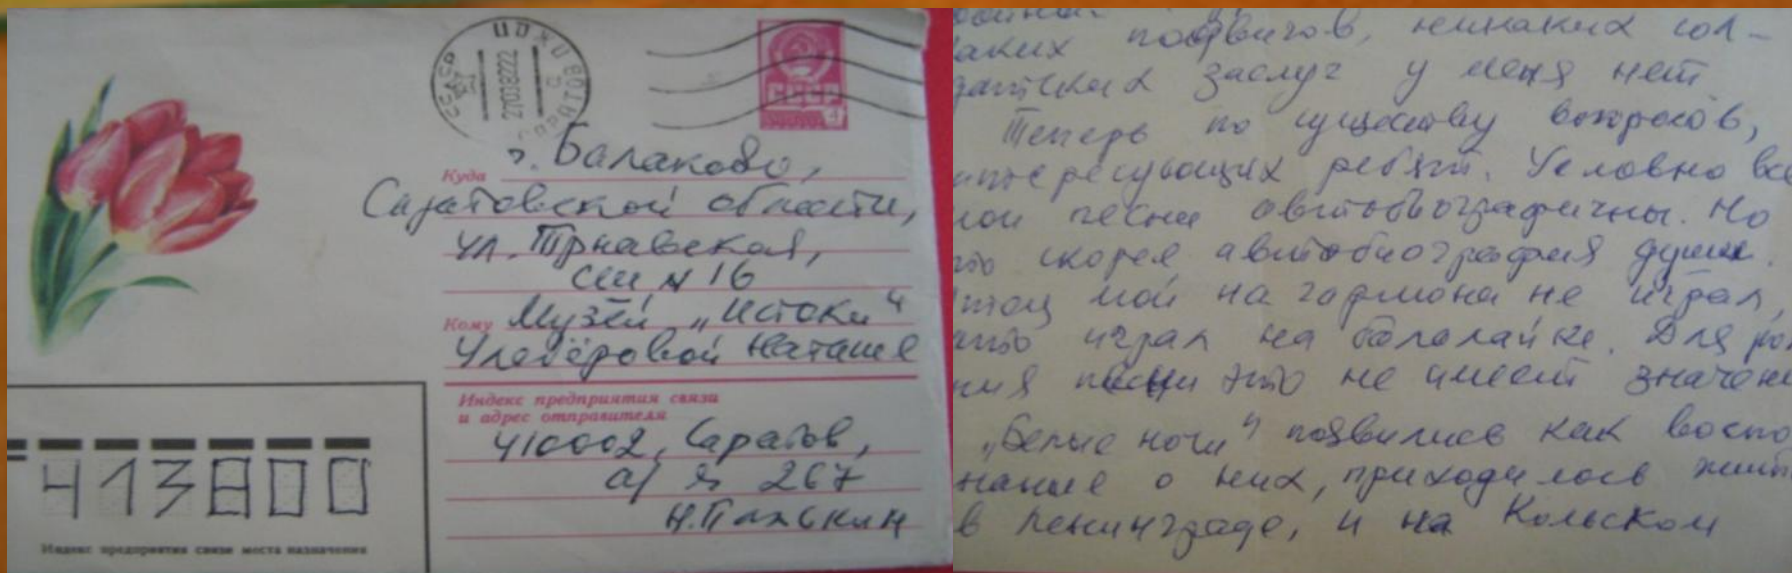 СССР
4
27038222
САРАТОВ
Куда
г. Балаково,
Саратовской области,
ул. Трнавская,
сш N 16
Кому
Музей „Истоки“
Наташе
Индекс предприятия связи
и адрес отправителя
410002, Саратов,
а/я 267
413800
Индекс предприятия связи места назначения
аких подвигов, никаких сол-
датских заслуг у меня нет
Теперь по существу вопросов,
интересующих ребят. Условно все
мои песни автобиографичны. Но
это скорее автобиография души.
Отец мой на гармони не играл,
играл на балалайке. Для
песни это не имеет
„Белые ночи“ появились как воспо
нание о них, приходилось жить
в Ленинграде, и на Кольском